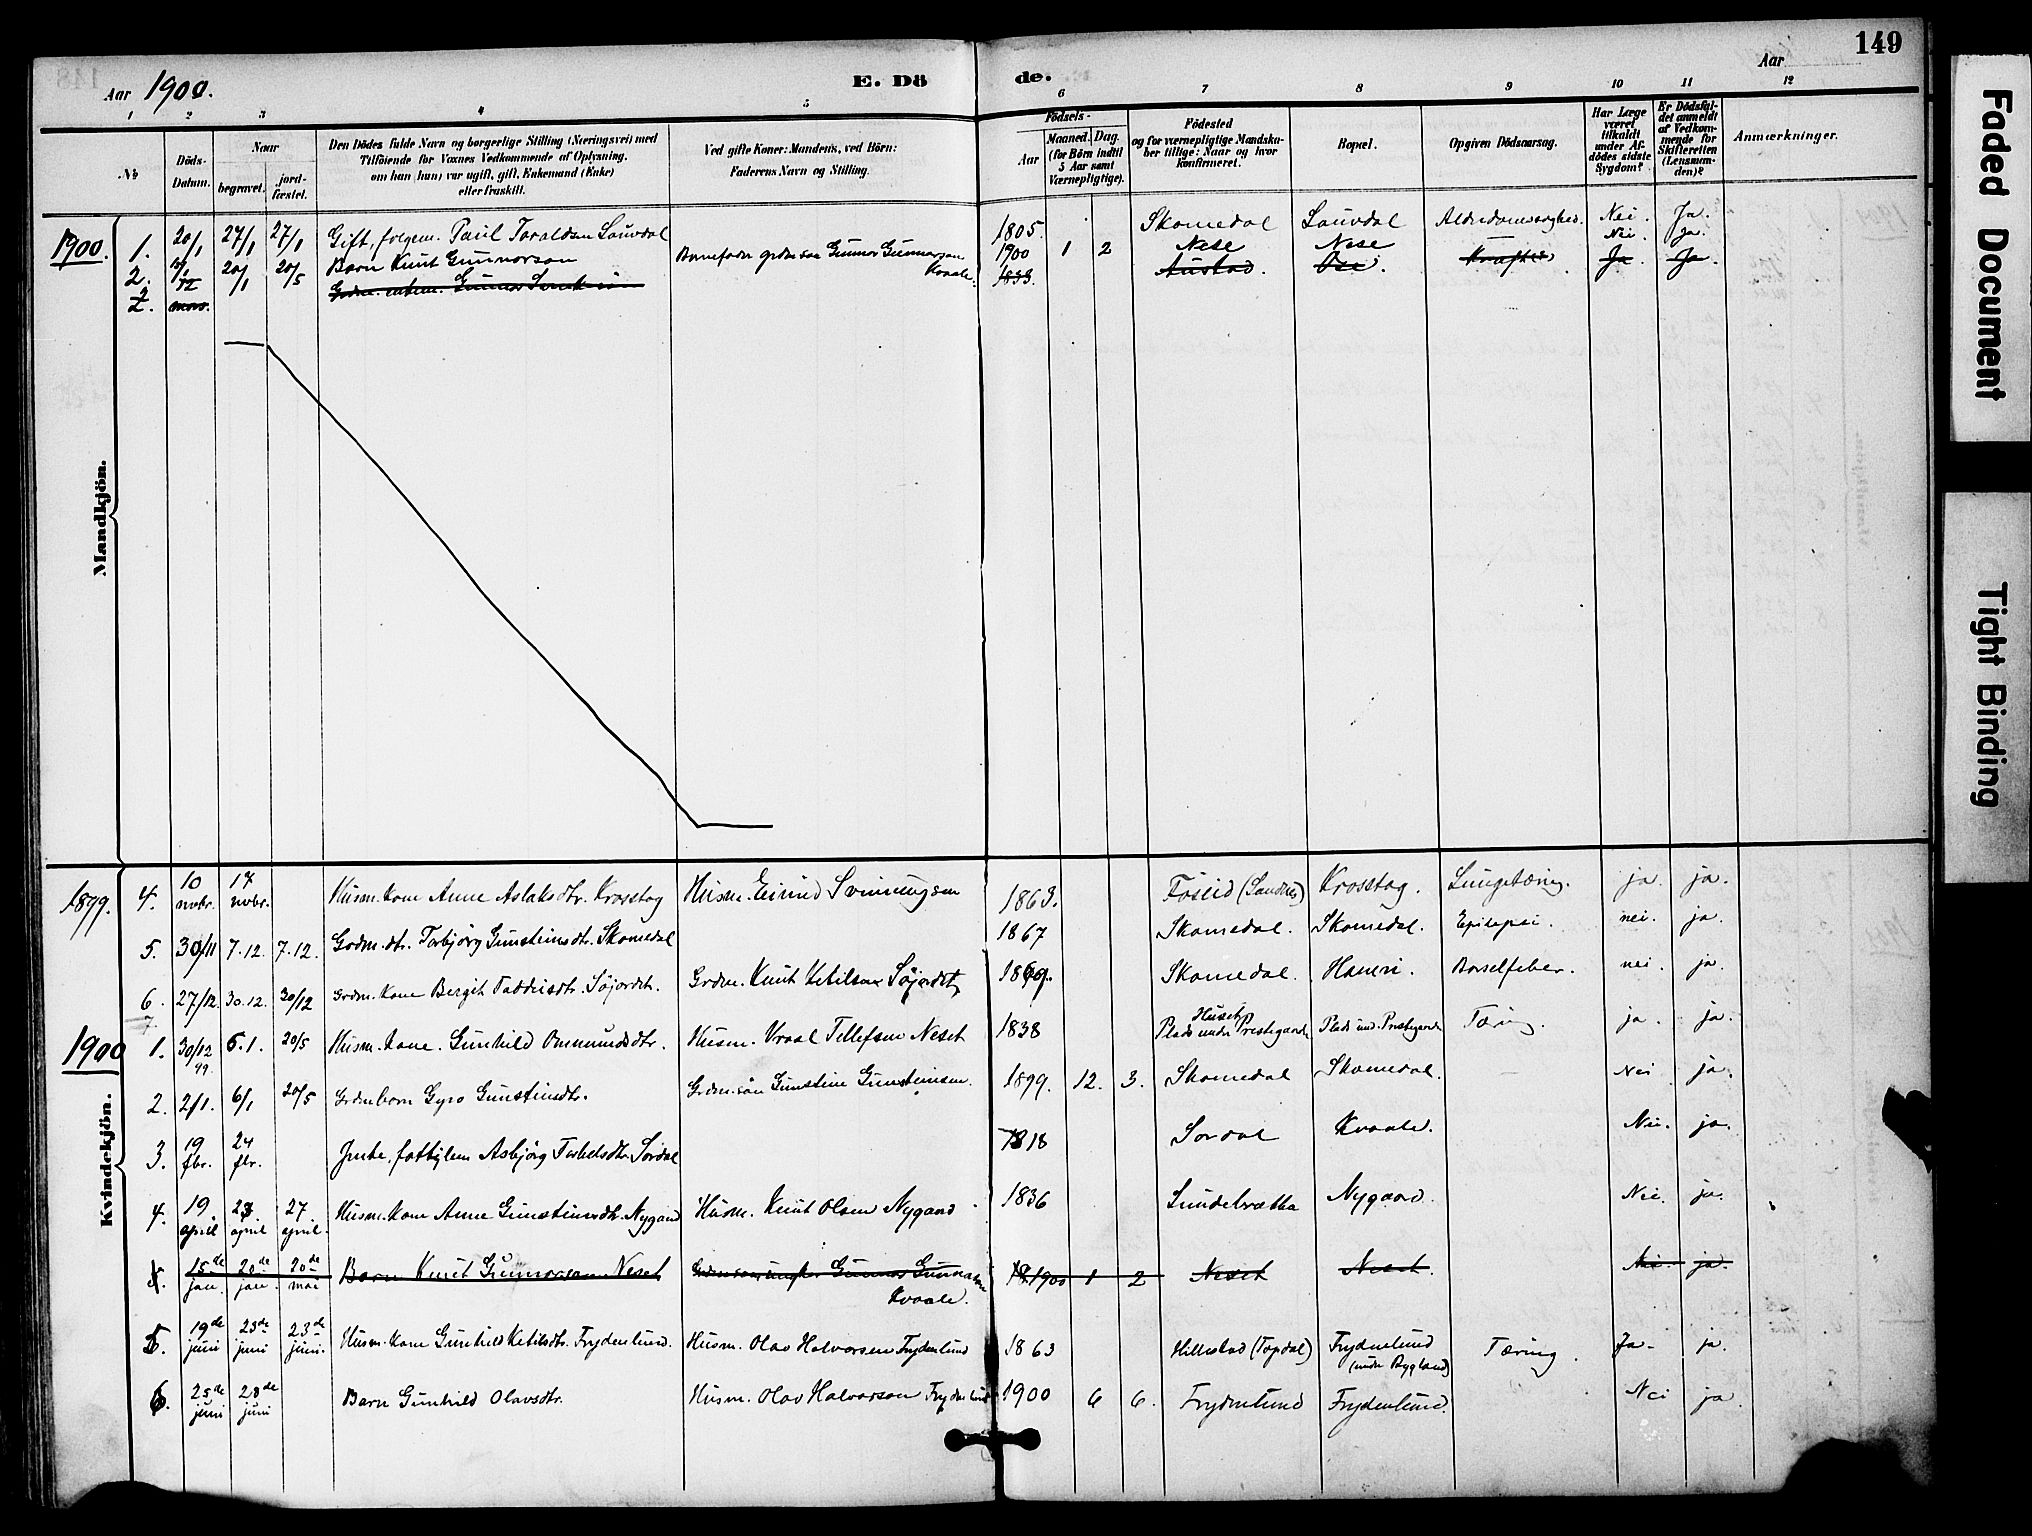 149
Aar 1900. E. Dö de. Aar
1 2 3 4 5 6 7 8 9 10 11 12
No.
Döds-Datum.
Naar
begravet.
jord-fæstet.
Den Dödes fulde Navn og borgerlige Stilling (Næringsvei) med
Tilföiende for Voxnes Vedkommende af Oplysning.
om han (hun) var ugift, gift, Enkemand (Enke)
eller fraskilt.
Ved gifte Koner: Mandens, ved Börn:
Faderens Navn og Stilling.
Födsels-
Aar
Maaned. Dag.
(for Börn indtil
5 Aar samt
Værnepligtige).
Födested
og for værnepligtige Mandska-
ber tillige: Naar og hvor
konfirmeret.
Bopæl.
Opgiven Dödsaarsag.
Har Læge
været
tilkaldt
under Af-
dödes sidste
Sygdom?
Er Dödsfal-
det anmeldt
af Vedkom-
mende for
Skifteretten
(Lensman-
den)?
Anmærkninger.
Mandkjön.
1900. 1. 20/1 27/1 27/1 Gift, folgem. Paul Taraldsen Lauvdal 1805. Skomedal Lauvdal Alderdomssvaghed. Nei. Ja.
2. 20/1 20/5 Barn Knut Gunnarson Barnefader grdm søn Gunnar Gunnarson Kvaale. 1900 1 2 Nese Nese Nei. Ja.
2. Grdm. enkem. Gunnar 1833. Austad. Ose. Kræft Ja. Ja.
Kvindekjön.
1899. 4. 10 novbr. 17 novbr. Husm. kone Anne Aslaksdtr. Krosstog Husm. Eivind Svinungsen 1863. (Sandnes) Krosstog. Lungetæring. ja. ja.
5. 30/11 7.12. 7.12. Grdm. dtr. Torbjörg Gunsteinsdtr. Skomedal 1867 Skomedal. Skomedal. Epilepsi. nei. ja.
6. 27/12 30.12. 30/12 Grdm. Kone Bergit Taddeusdtr. Söjordet. Grdm. Knut Ketilson Söjordet 1869. Skomedal. Hamre. Barselfeber. nei. ja.
7.
1900 1. 30/12 99. 6.1. 20/5 Husm. kone. Gunhild Ommundsdtr. Husm. Vraal Tellefsen Neset 1838 Huset Plads under Prestegaarden Plads und. Prestegaarden Tæring. ja. ja.
2. 2/1. 6/1 20/5 Grdm barn Gyro Gunsteinsdtr. Grdm. sön Gunstein Gunsteinsen. 1899. 12. 3. Skomedal Skomedal. — Nei ja.
3. 19 fbr. 24 fbr. Jente, fattiglem Asbjörg Torkelsdtr. Sordal 1818 Sordal Kvaale. Nei. ja.
4. 19 april 23 april 27 april. Husm. kone Anne Gunsteinsdtr. Nygaard Husm. Knut Olsen Nygaard 1836 Sundebrætta Nygaard. Nei. ja.
15de jan. 20de jan. 20de mai Barn Knut Gunnarson Neset Grdm søn ungkr. Gunnar Gunnarsen Kvaale. 1900 1 2 Neset Neset. Nei. ja.
5. 19de juni 23de juni 23de juni. Husm. kone Gunhild Ketilsdtr. Frydenlund. Husm. Olav Halvorsen Frydenlund 1863 Hillestad (Topdal) Frydenlund (under Bygland) Tæring. Ja ja.
6. 25de juni 28de juni Barn Gunhild Olavsdtr. Husm. Olav Halvorson Frydenlund 1900 6 6. Frydenlund Frydenlund. Nei ja.
Faded Document
Tight Binding